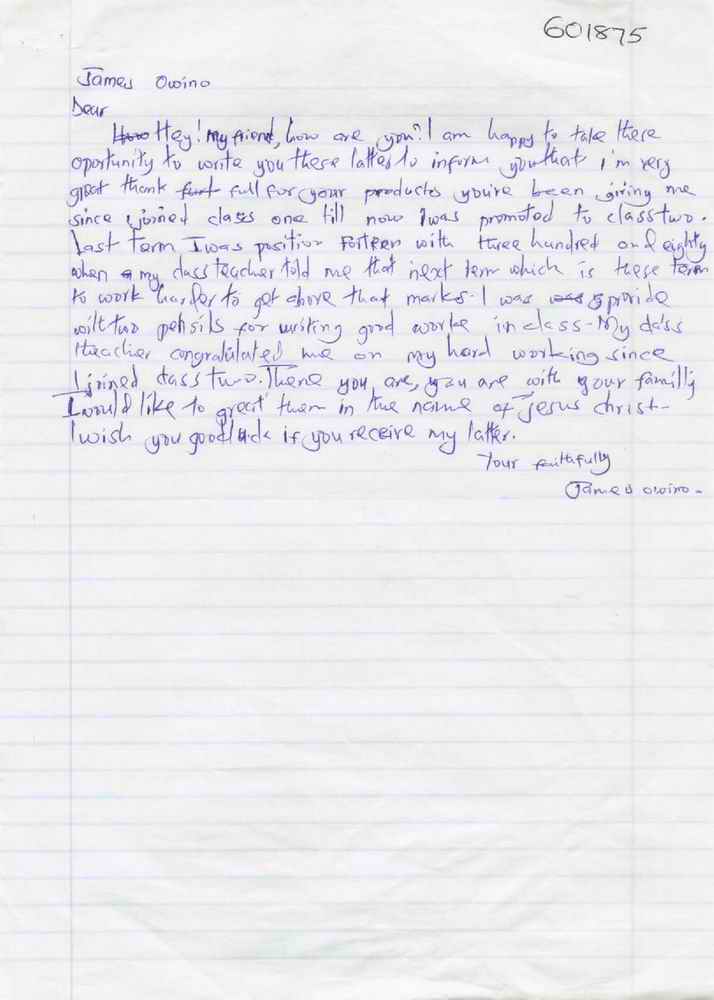 601875
James Owino
Dear
Hey! My friend, how are you? I am happy to take there
oportunity to write you these latter to inform you that i'm very
great thank full for your products you're been giving me
since I joined class one till now I was promoted to class two.
Last term I was position Forteen with three hundred and eighty
when my class teacher told me that next term which is these term
to work harder to get above that marks. I was provide
with two pensils for writing good worke in class. My class
teacher congratulated me on my hard working since
I joined class two. There you are, you are with your familly
I would like to great them in the name of Jesus christ-
I wish you goodluck if you receive my latter.
Your faithfully
James owino.